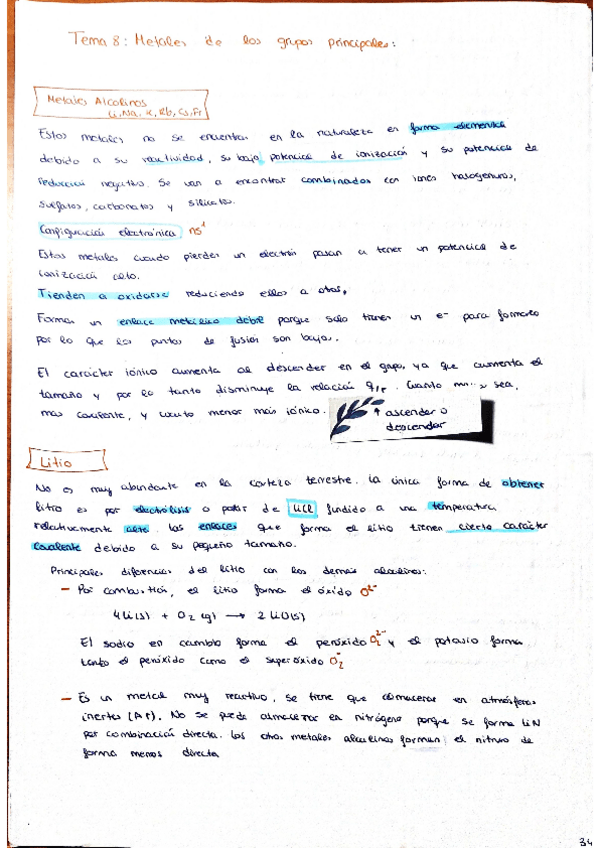 Tema 8: Metales de los grupos principales:
Metales Alcalinos
Li, Na, K, Rb, Cs, Fr
Estos metales no se encuentran en la naturaleza en forma elemental
debido a su reactividad, su bajo potencial de ionización y su potencial de
reducción negativo. Se van a encontrar combinados con iones halogenuros,
sulfatos, carbonatos y silicatos.
Configuración electrónica ns¹
Estos metales cuando pierden un electrón pasan a tener un potencial de
ionización alto.
Tienden a oxidarse reduciendo ellos a otros.
Forman un enlace metálico débil porque solo tienen un e⁻ para formarlo
por lo que los puntos de fusión son bajos.
El carácter iónico aumenta al descender en el grupo, ya que aumenta el
tamaño y por lo tanto disminuye la relación q/r. Cuanto sea,
más covalente, y cuanto menor más iónico.
ascender o
descender
Litio
No es muy abundante en la corteza terrestre. La única forma de obtener
litio es por electrólisis a partir de LiCl fundido a una temperatura
relativamente alta. Los enlaces que forma el litio tienen cierto carácter
covalente debido a su pequeño tamaño.
Principales diferencias del litio con los demás alcalinos:
- Por combustión, el litio forma el óxido O²⁻
4Li(s) + O₂(g) → 2LiO(s)
El sodio en cambio forma el peróxido O₂²⁻ y el potasio forma
tanto el peróxido como el superóxido O₂⁻
- Es un metal muy reactivo, se tiene que almacenar en atmósferas
inertes (Ar). No se puede almacenar en nitrógeno porque se forma LiN
por combinación directa. Los otros metales alcalinos forman el nitruro de
forma menos directa
34